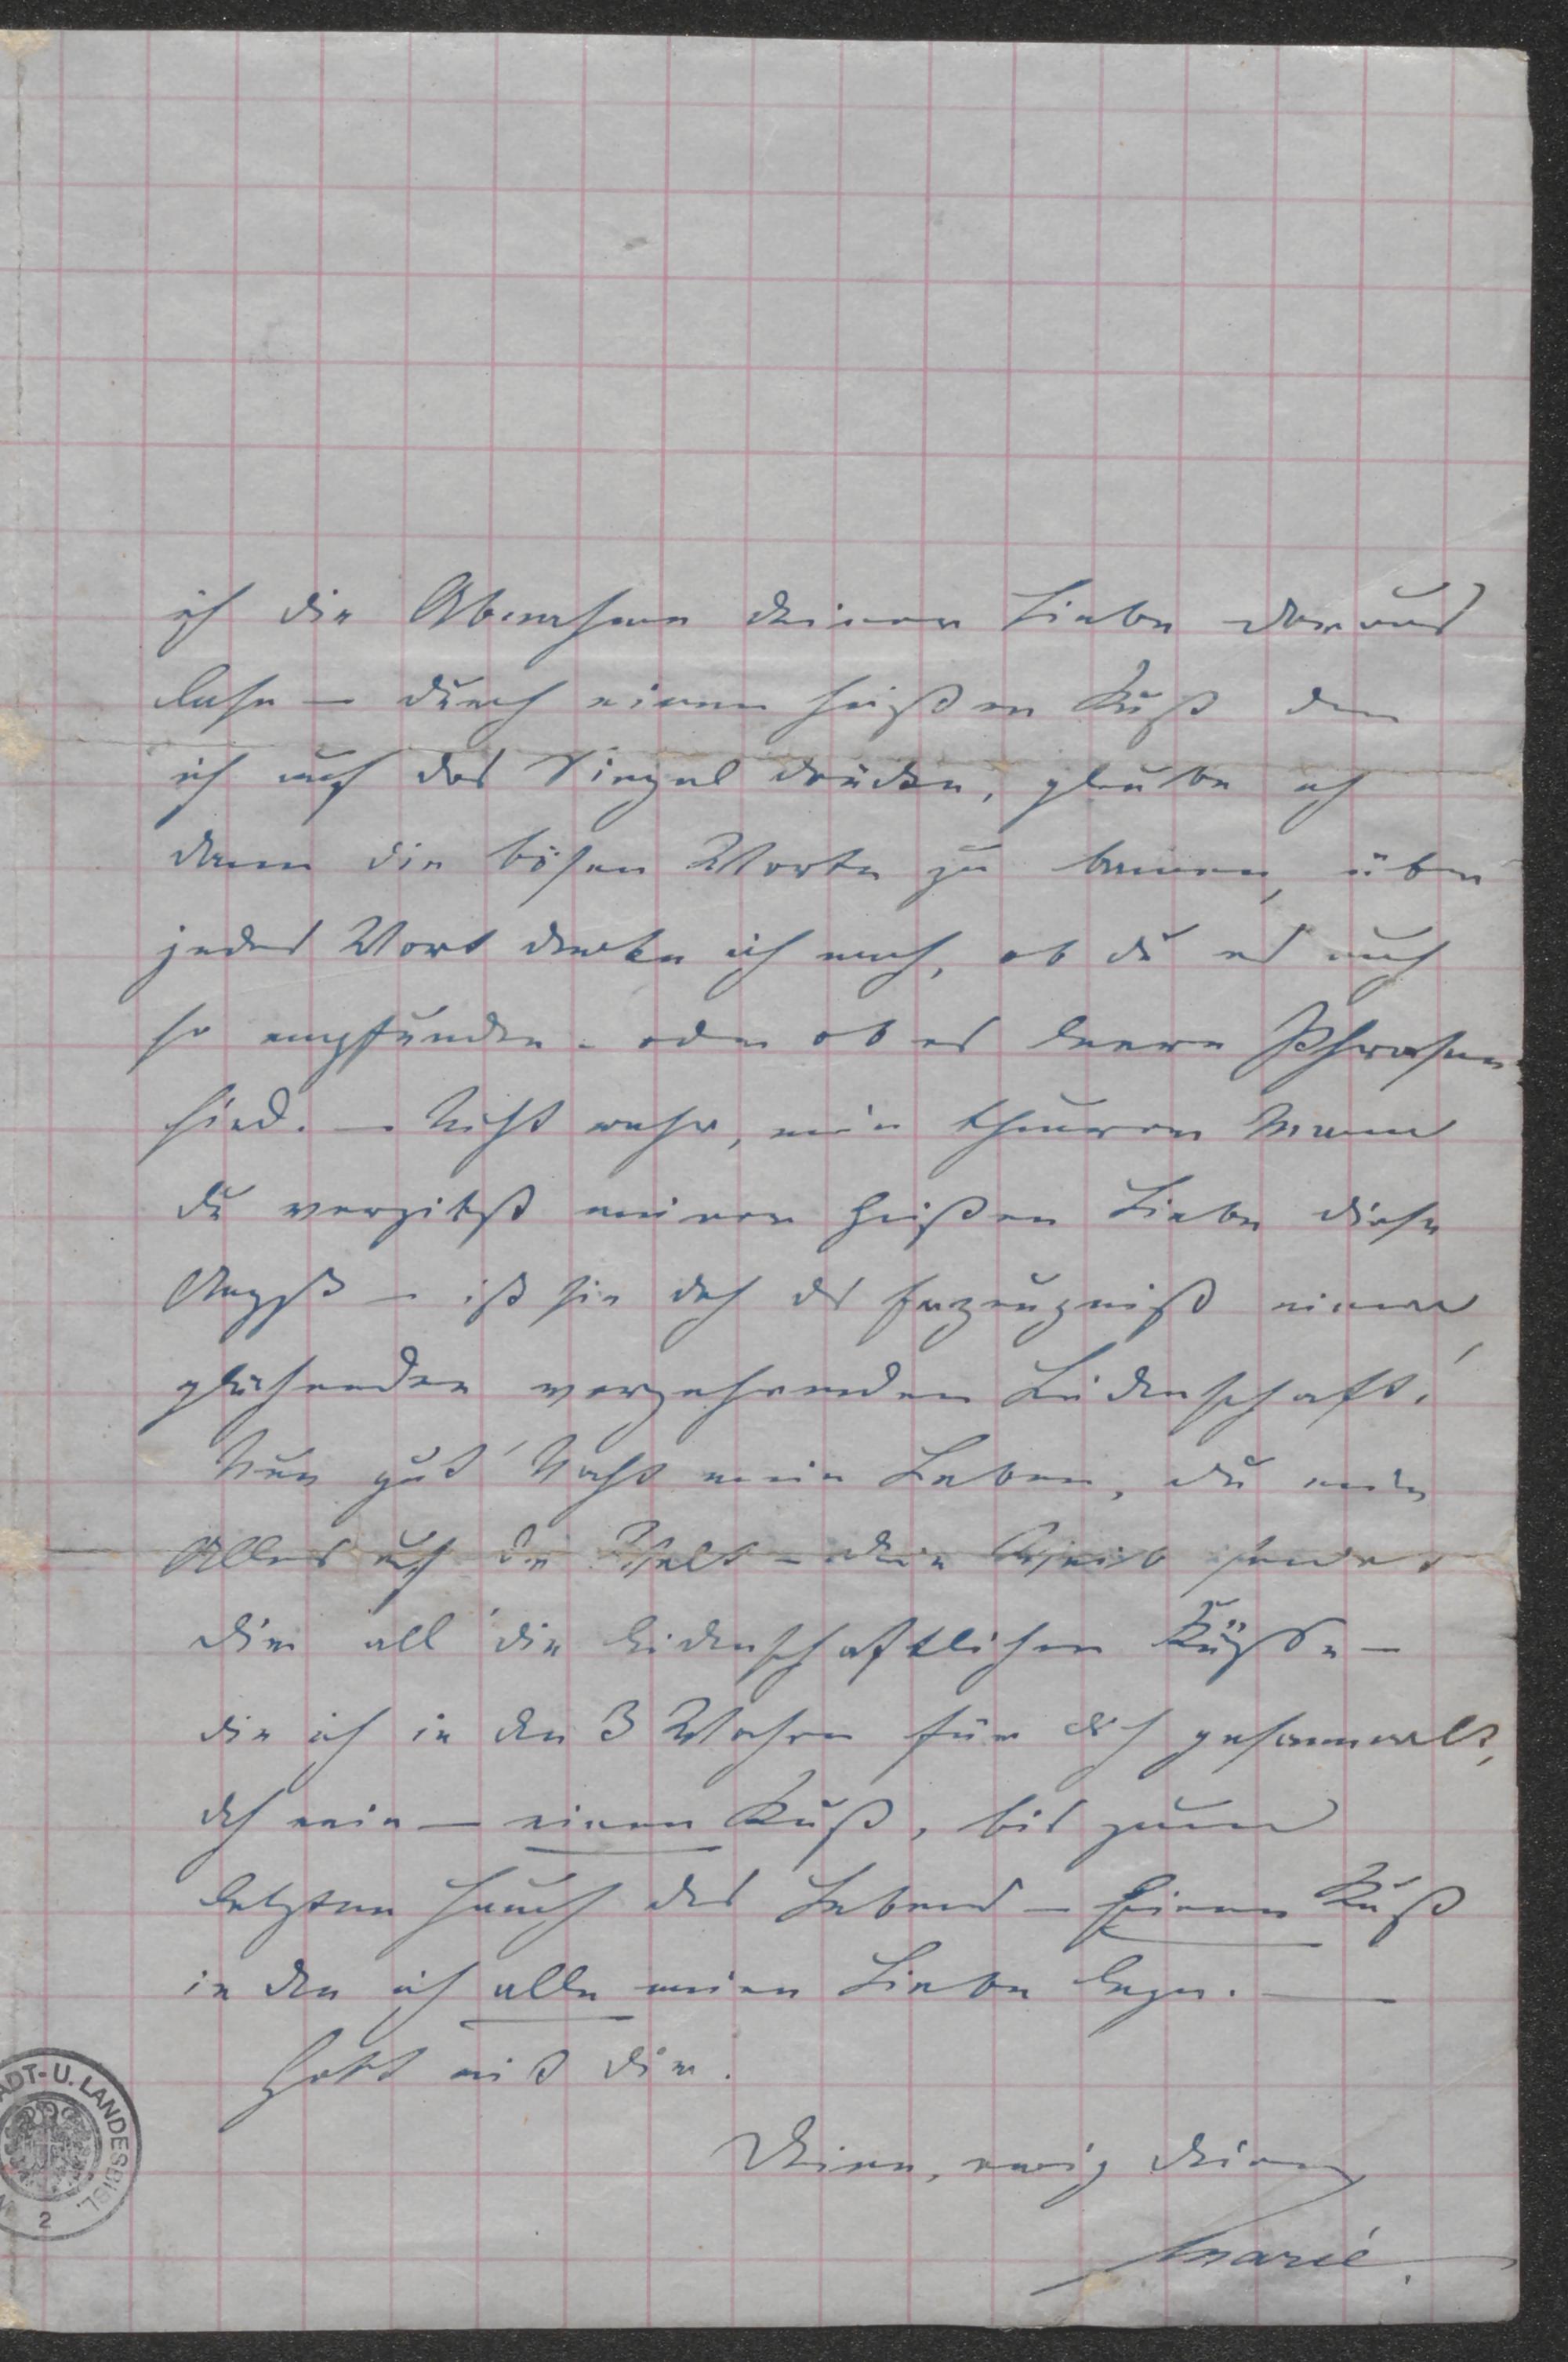 ich die Abnahme deiner Liebe daraus
lese – durch einen heißen Kuß den
ich auf das Siegel drücke, glaube ich
dann die bösen Worte zu bannen, über
jedes Wort denke ich nach, ob du es auch
so empfunden – oder ob es leere Phrasen
sind. – Nicht wahr, mein theurer Mann
du vergibst meiner heißen Liebe diese
Angst – ist sie doch das Erzeugniß einer
glühenden verzehrenden Leidenschaft!
Nun gut' Nacht mein Leben, du mein
Alles auf der Welt – dein Weib sendet
dir all' die leidenschaftlichen Küsse –
die ich in den 3 Wochen für dich gesammelt,
doch nein – einen Kuß, bis zum
letzten Hauch des Lebens – Einen Kuß
in den ich alle meine Liebe lege. –
Gott mit dir.
Deine, ewig deine
Marie.
STADT- U. LANDESBIBL.
2